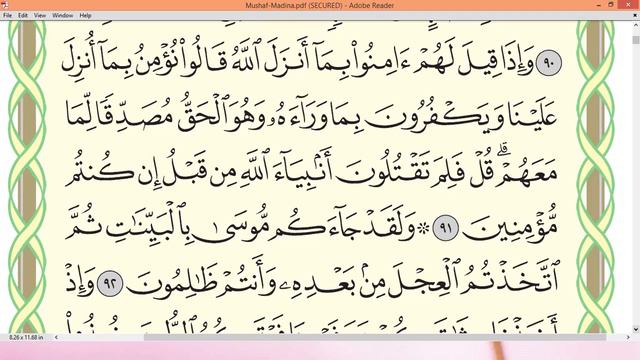 Mushaf-Madina.pdf (SECURED) - Adobe Reader
File Edit View Window Help
٩٠ وَإِذَا قِيلَ لَهُمْ ءَامِنُوا۟ بِمَآ أَنزَلَ ٱللَّهُ قَالُوا۟ نُؤْمِنُ بِمَآ أُنزِلَ
عَلَيْنَا وَيَكْفُرُونَ بِمَا وَرَآءَهُۥ وَهُوَ ٱلْحَقُّ مُصَدِّقًا لِّمَا
مَعَهُمْ ۗ قُلْ فَلِمَ تَقْتُلُونَ أَنۢبِيَآءَ ٱللَّهِ مِن قَبْلُ إِن كُنتُم
مُّؤْمِنِينَ ٩١ ۞ وَلَقَدْ جَآءَكُم مُّوسَىٰ بِٱلْبَيِّنَٰتِ ثُمَّ
ٱتَّخَذْتُمُ ٱلْعِجْلَ مِنۢ بَعْدِهِۦ وَأَنتُمْ ظَٰلِمُونَ ٩٢ وَإِذْ
8.26 x 11.68 in